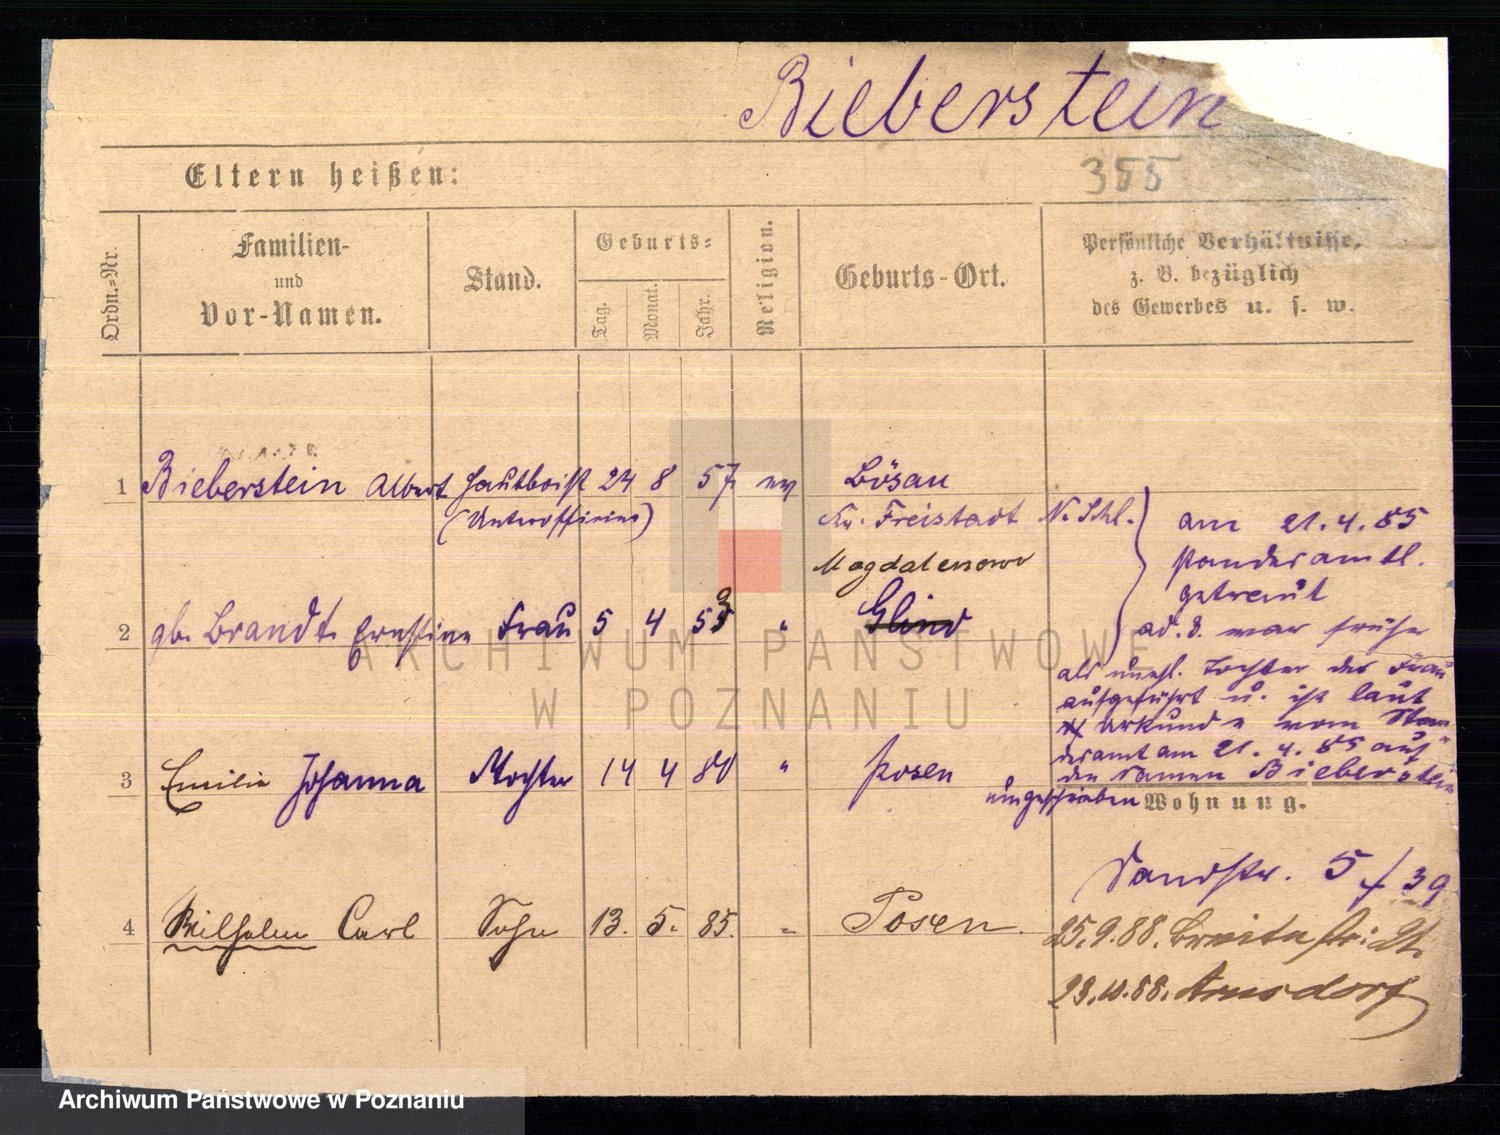 Bieberstein
355
Eltern heißen:
Ordn.=Nr.
Familien-
und
Vor-Namen.
Stand.
Geburts=
Tag.
Monat.
Jahr.
Religion.
Geburts-Ort.
Persönliche Verhältnisse,
z. B. bezüglich
des Gewerbes u. s. w.
1 Bieberstein Albert Hautboist 24 8 57 ev Bösau
(Unteroffizier) Kr. Freistadt N. Schl.
am 21.4.85
standesamtl.
getraut
Magdalenowo
2 gb. Brandt Ernstine Frau 5 4 53 " Glino
ad. 3. war früher
als unehl. Tochter der Frau
aufgeführt u. ist laut
Urkunde vom Stan-
desamt am 21.4.85 auf
den Namen Bieberstein
eingeschrieben
3 Emilie Johanna Tochter 14 4 80 " Posen
Wohnung.
Sandstr. 5 / 39
4 Wilhelm Carl Sohn 13. 5. 85. " Posen.
25.9.88. Breitestr: 21.
23.10.88. Arnsdorf
ARCHIWUM PAŃSTWOWE
W POZNANIU
Archiwum Państwowe w Poznaniu